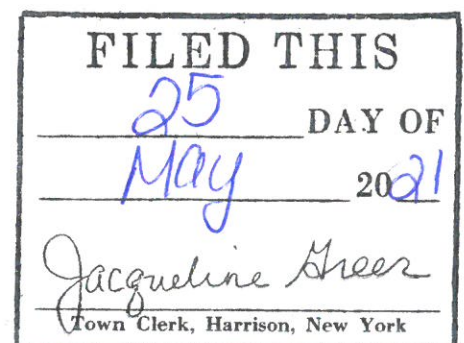 FILED THIS
25 DAY OF
May 2021
Jacqueline Greer
Town Clerk, Harrison, New York